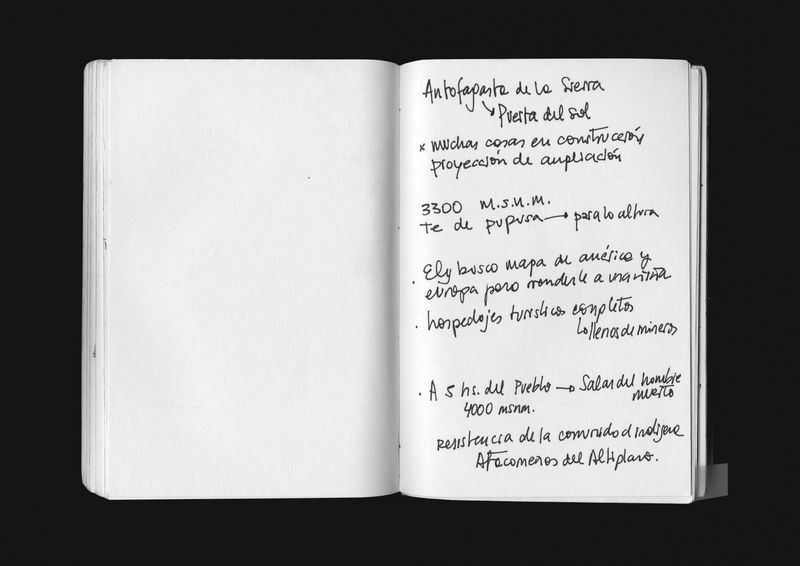 Antofagasta de la Sierra
↘ Puerta del Sol
x muchas cosas en construcción
proyección de ampliación
3300 m.s.n.m.
te de pupusa → para la altura
· Ely busco mapa de américa y
europa para venderle a una niña
· hospedajes turísticos completos
↳ llenos de mineros
· A 5 hs. del Pueblo → Salar del hombre
muerto
4000 msnm.
Resistencia de la comunidad indígena
Atacameños del Altiplano.